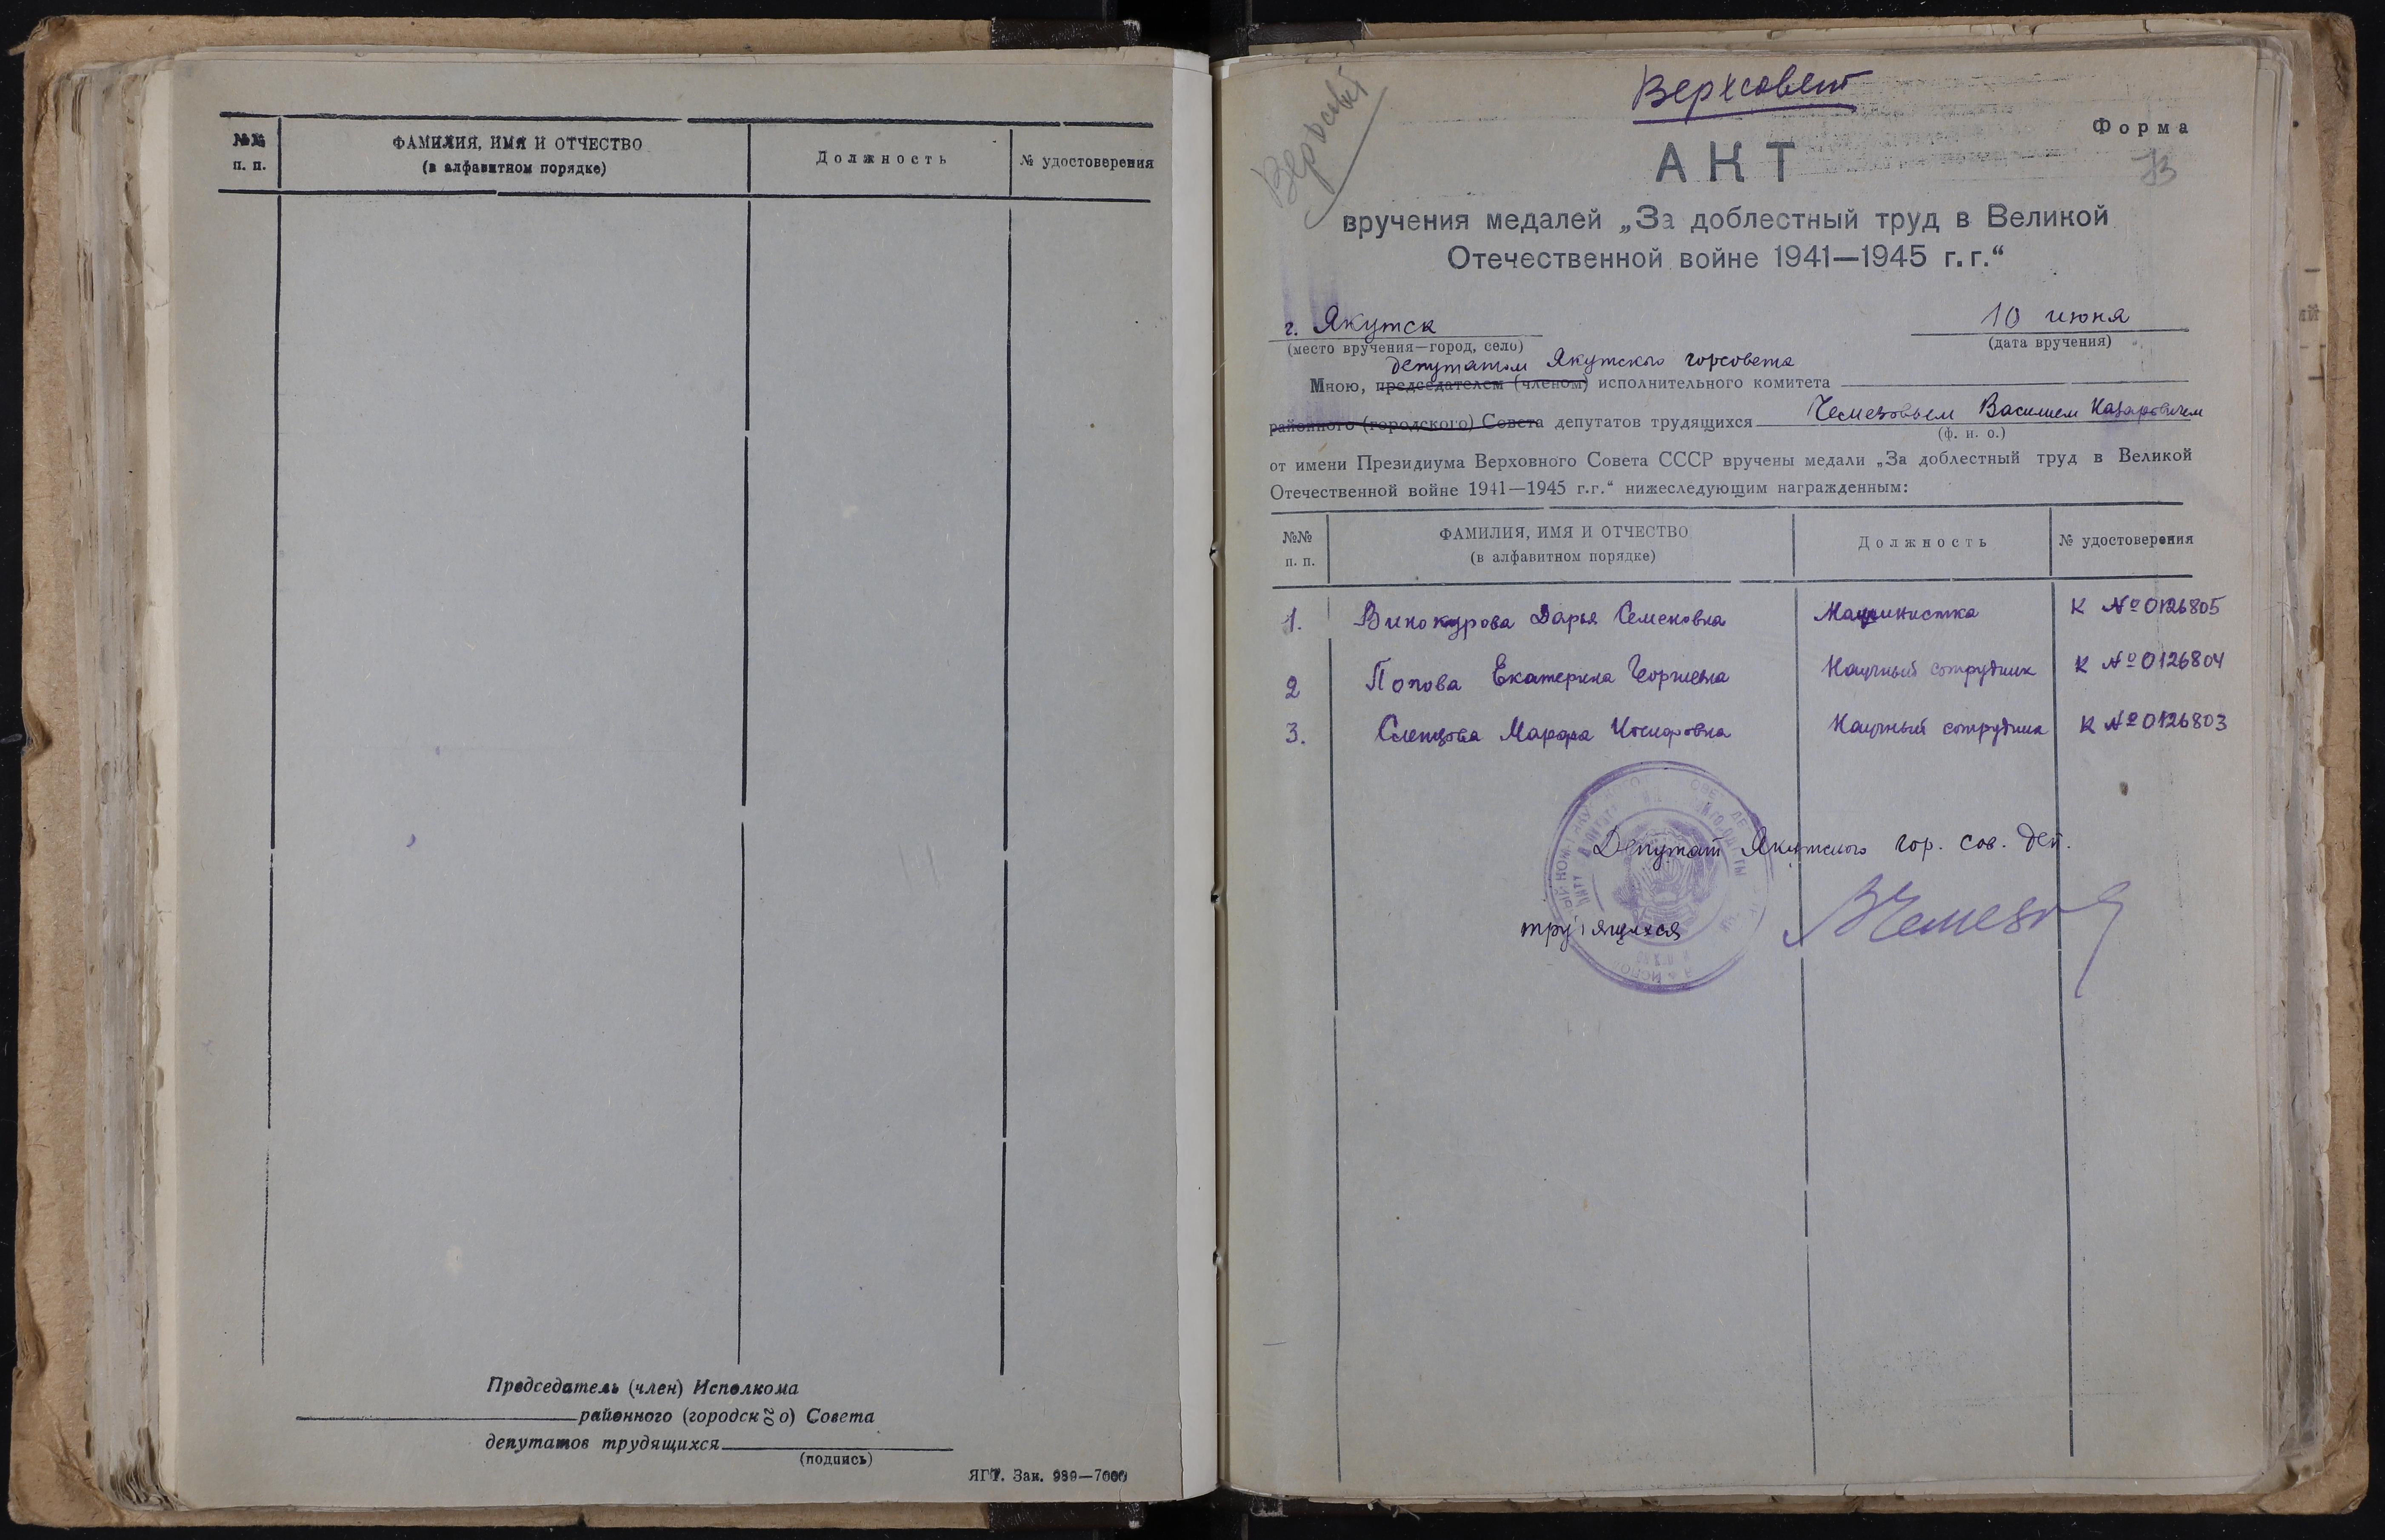 №№ п. п.
ФАМИЛИЯ, ИМЯ И ОТЧЕСТВО
(в алфавитном порядке)
Должность
№ удостоверения
Председатель (член) Исполкома
районного (городского) Совета
депутатов трудящихся
(подпись)
ЯГТ. Зак. 989—7000
Верхсовет
Верхсовет
Форма
АКТ
вручения медалей „За доблестный труд в Великой
Отечественной войне 1941—1945 г.г.“
г. Якутск
10 июня
(место вручения—город, село)
(дата вручения)
депутатом Якутского горсовета
Мною, председателем (членом) исполнительного комитета
районного (городского) Совета депутатов трудящихся Чемезовым Василием Назаровичем
(ф. и. о.)
от имени Президиума Верховного Совета СССР вручены медали „За доблестный труд в Великой
Отечественной войне 1941—1945 г.г.“ нижеследующим награжденным:
№№ п. п.
ФАМИЛИЯ, ИМЯ И ОТЧЕСТВО
(в алфавитном порядке)
Должность
№ удостоверения
1. Винокурова Дарья Семеновна Машинистка К № 0126805
2 Попова Екатерина Георгиевна Научный сотрудник К № 0126804
3. Слепцова Марфа Иосифовна Научный сотрудник К № 0126803
Депутат Якутского гор. сов. деп.
трудящихся ВЧемезов